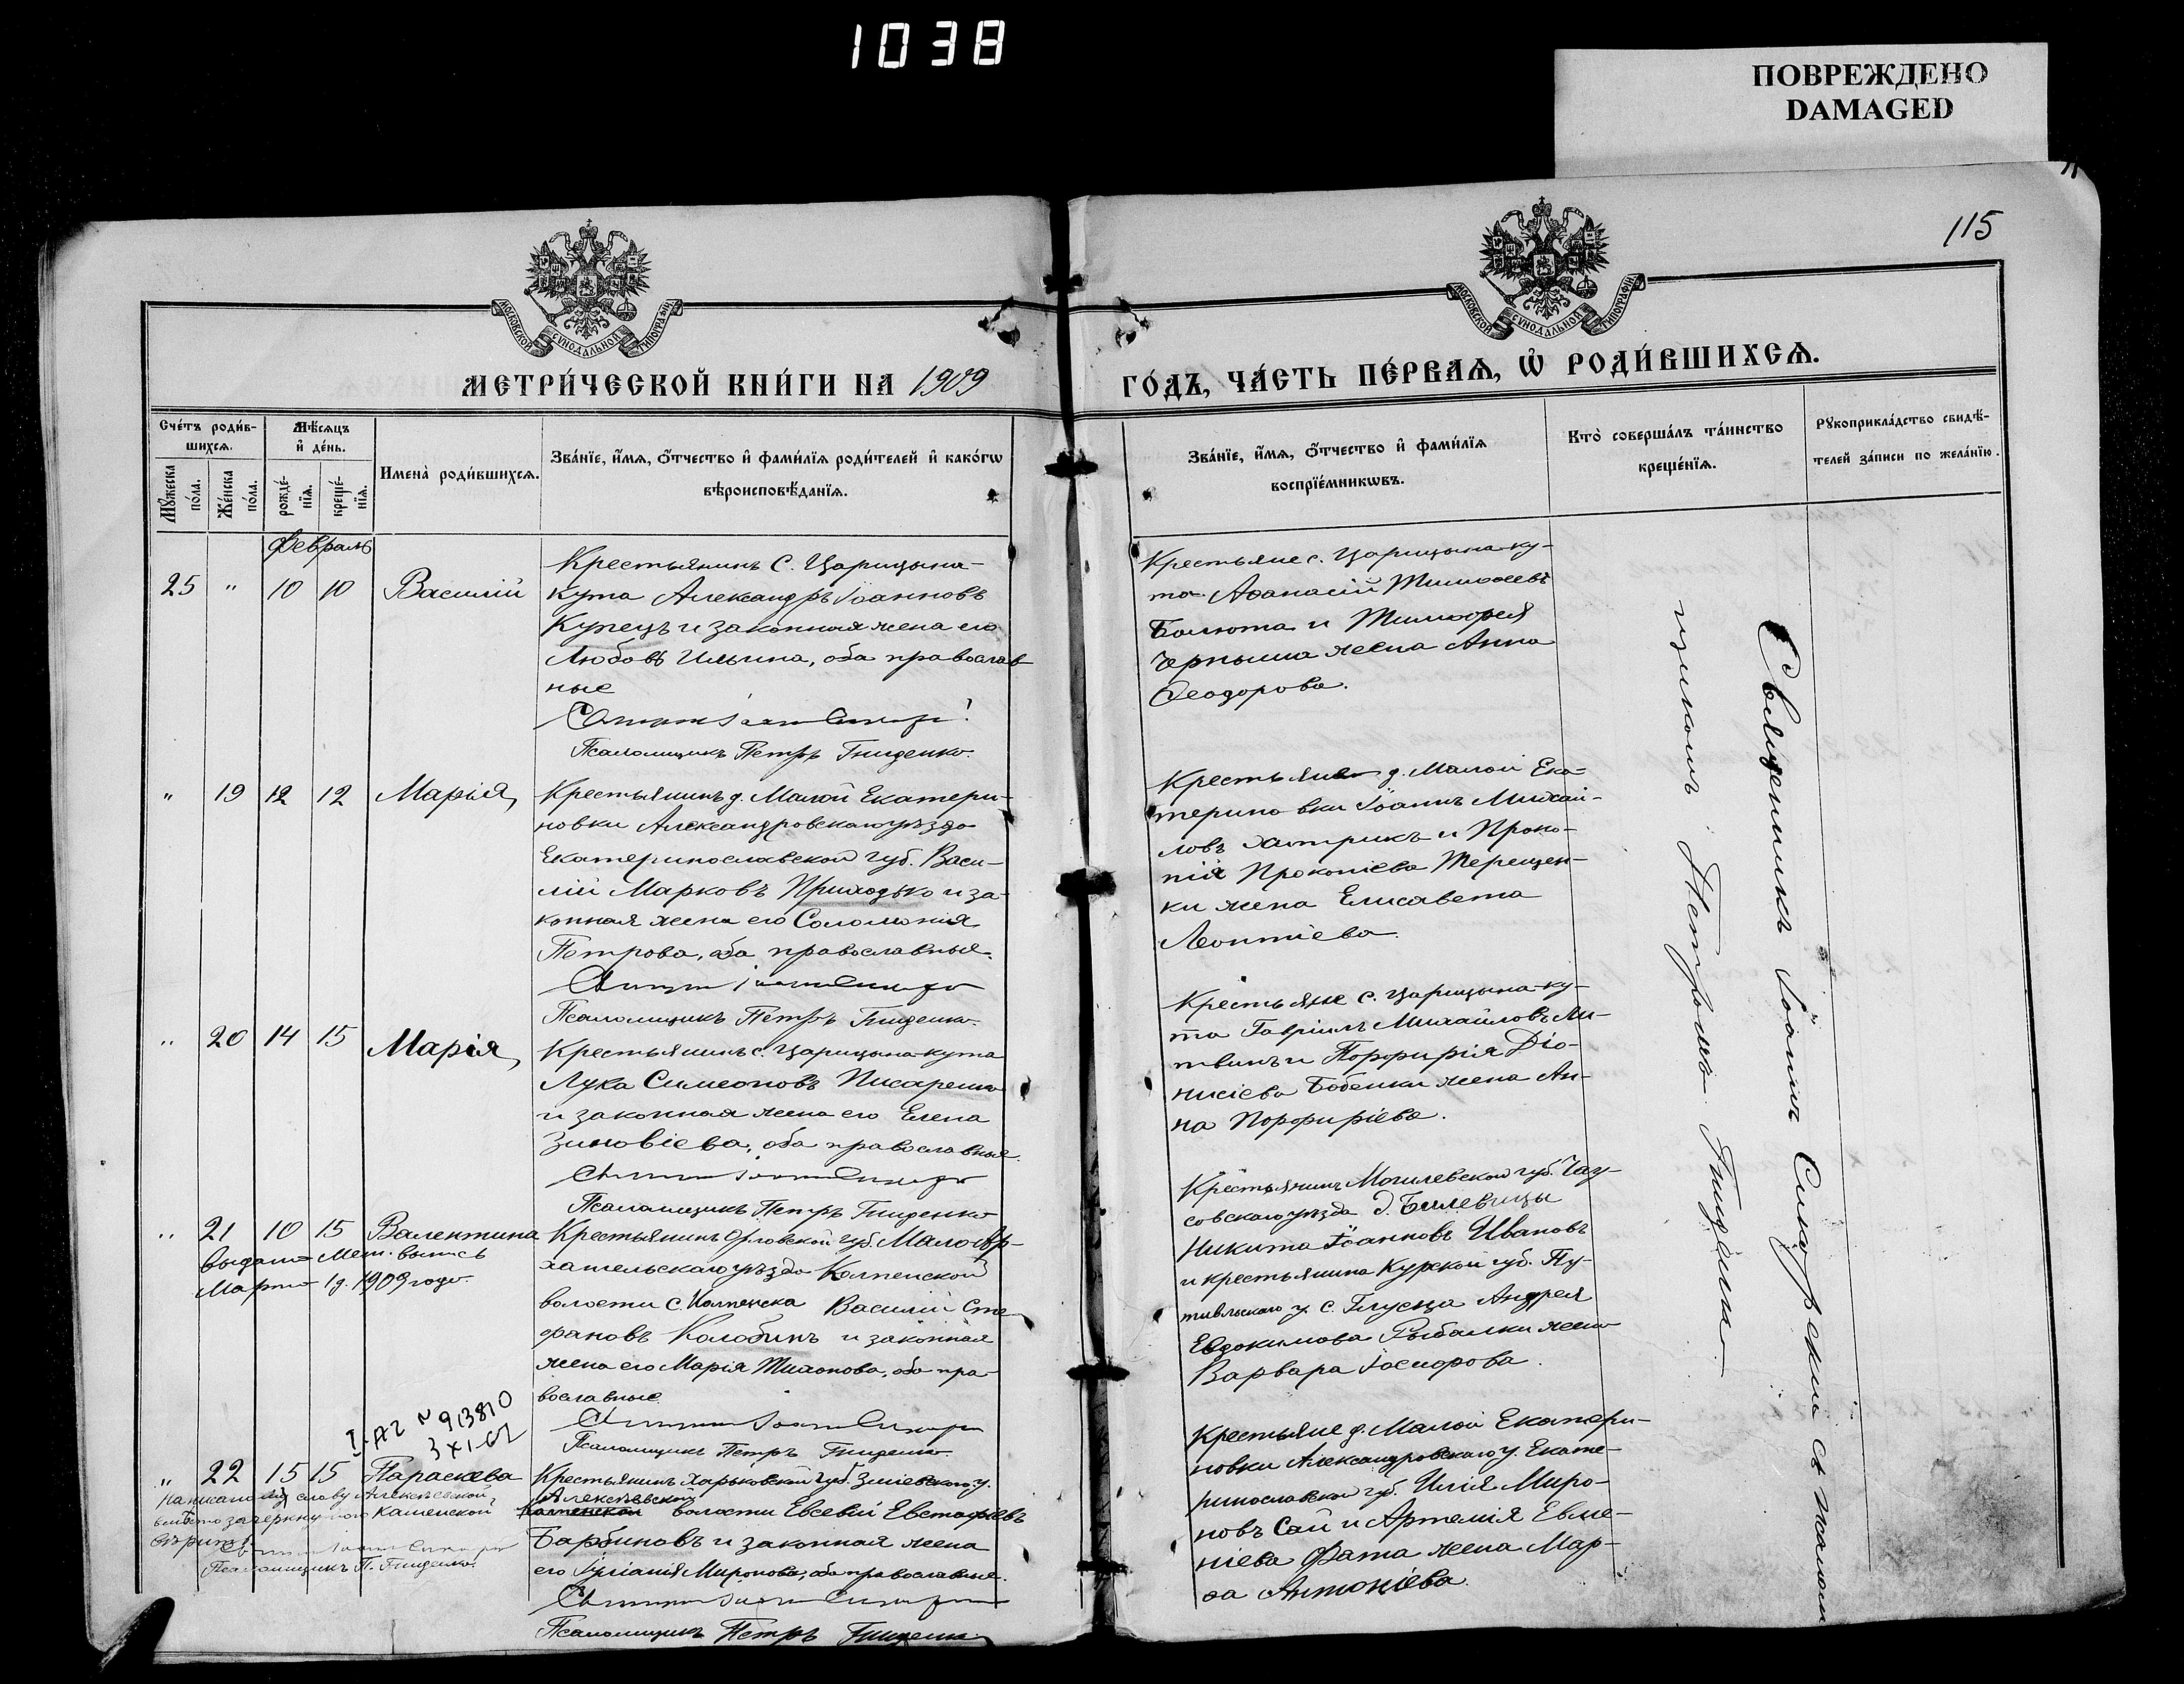 1038
ПОВРЕЖДЕНО
DAMAGED
115
МОСКОВСКОЙ СѴНОДАЛЬНОЙ ТИПОГРАФІИ
МОСКОВСКОЙ СѴНОДАЛЬНОЙ ТИПОГРАФІИ
МЕТРИ́ЧЕСКОЙ КНИ́ГИ НА 1909
ГО́ДЪ, ЧА́СТЬ ПЕ́РВАѦ, Ѽ РОДИ́ВШИХСѦ.
Сче́тъ роди́в-
шихсѧ.
Мꙋжеска по́ла.
Же́нска по́ла.
Мѣ́сѧцъ
и҆ де́нь.
рожде́-
нїѧ.
креще́-
нїѧ.
Имена̀ роди́вшихсѧ.
Зва́нїе, и҆́мѧ, ѻ҆́тчество и҆ фами́лїѧ роди́телей и҆ како́гѡ
вѣроисповѣ́данїѧ.
Зва́нїе, и҆́мѧ, ѻ҆́тчество и҆ фами́лїѧ
воспрїе́мникѡвъ.
Кто̀ соверша́лъ та́инство
креще́нїѧ.
Рꙋкоприкла́дство свидѣ́-
телей за́писи по жела́нїю.
Февраль
25 " 10 10 Василій
Крестьянинъ с. Царицына-
кута Александръ Іоанновъ
Купецъ и законная жена его
Любовь Ильина, оба православ
ные
Псаломщикъ Петръ Гниденко.
Крестьяне с. Царицына-ку-
та Аѳанасій Тимоѳеевъ
Балюта и Тимоѳея
Черныша жена Анна
Ѳеодорова.
" 19 12 12 Марія,
Крестьянинъ д. Малой Екатери-
новки Александровскаго уѣзда
Екатеринославской губ. Васи-
лій Марковъ Приходько и за-
конная жена его Соломонія
Петрова, оба православные.
Псаломщикъ Петръ Гниденко.
Крестьяне д. Малой Ека-
терино вки Іоаннъ Михай-
ловъ Хатрикъ и Проко-
пія Прокопіева Терещен-
ки жена Елисавета
Леонтіева.
" 20 14 15 Марія,
Крестьянинъ с. Царицына-кута
Лука Симеоновъ Писаренко
и законная жена его Елена
Зиновіева, оба православные.
Псаломщикъ Петръ Гниденко
Крестьяне с. Царицына-ку-
та Гавріилъ Михайловъ Ли-
твинъ и Порфирія Діо-
нисіева Бобенки жена Ан-
на Порфиріева.
" 21 10 15 Валентина
Выдана Мет. выпись
Марта 1 д. 1909 года.
Крестьянинъ Орловской губ. Малоар-
хангельскаго уѣзда Колпенской
волости с. Колпенска Василій Сте
фановъ Колобинъ и законная
жена его Марія Тихонова, оба пра-
вославные
Псаломщикъ Петръ Гниденко.
Крестьянинъ Могилевской губ. Чау-
совскаго уѣзда д. Билевицы
Никита Іоанновъ Ивановъ
и крестьянина Курской губ. Пу-
тивльскаго у. с. Глусца Андрея
Евдокимова Рыбалки жена
Варвара Іосифова.
" 22 15 15 Параскева
Написано слову Алексѣевской
вмѣсто зачеркнутаго Каменской
вѣрить
Псаломщикъ П. Гниденко.
Крестьянинъ Харьковской губ. Зміевскаго у.
Алексѣевской
Каменской волости Евсевій Евстафіевъ
Барбиновъ и законная жена
его Іуліанія Миронова, оба православные.
Псаломщикъ Петръ Гниденко
Крестьяне д. Малой Екатери-
новки Александровскаго у. Екате-
ринославской губ. Илія Миро-
новъ Сай и Артемія Евме-
ніева Фата жена Мар-
ѳа Антоніева.
Священникъ Іоаннъ Сикорскій съ псалом
щикомъ Петромъ Гниденко